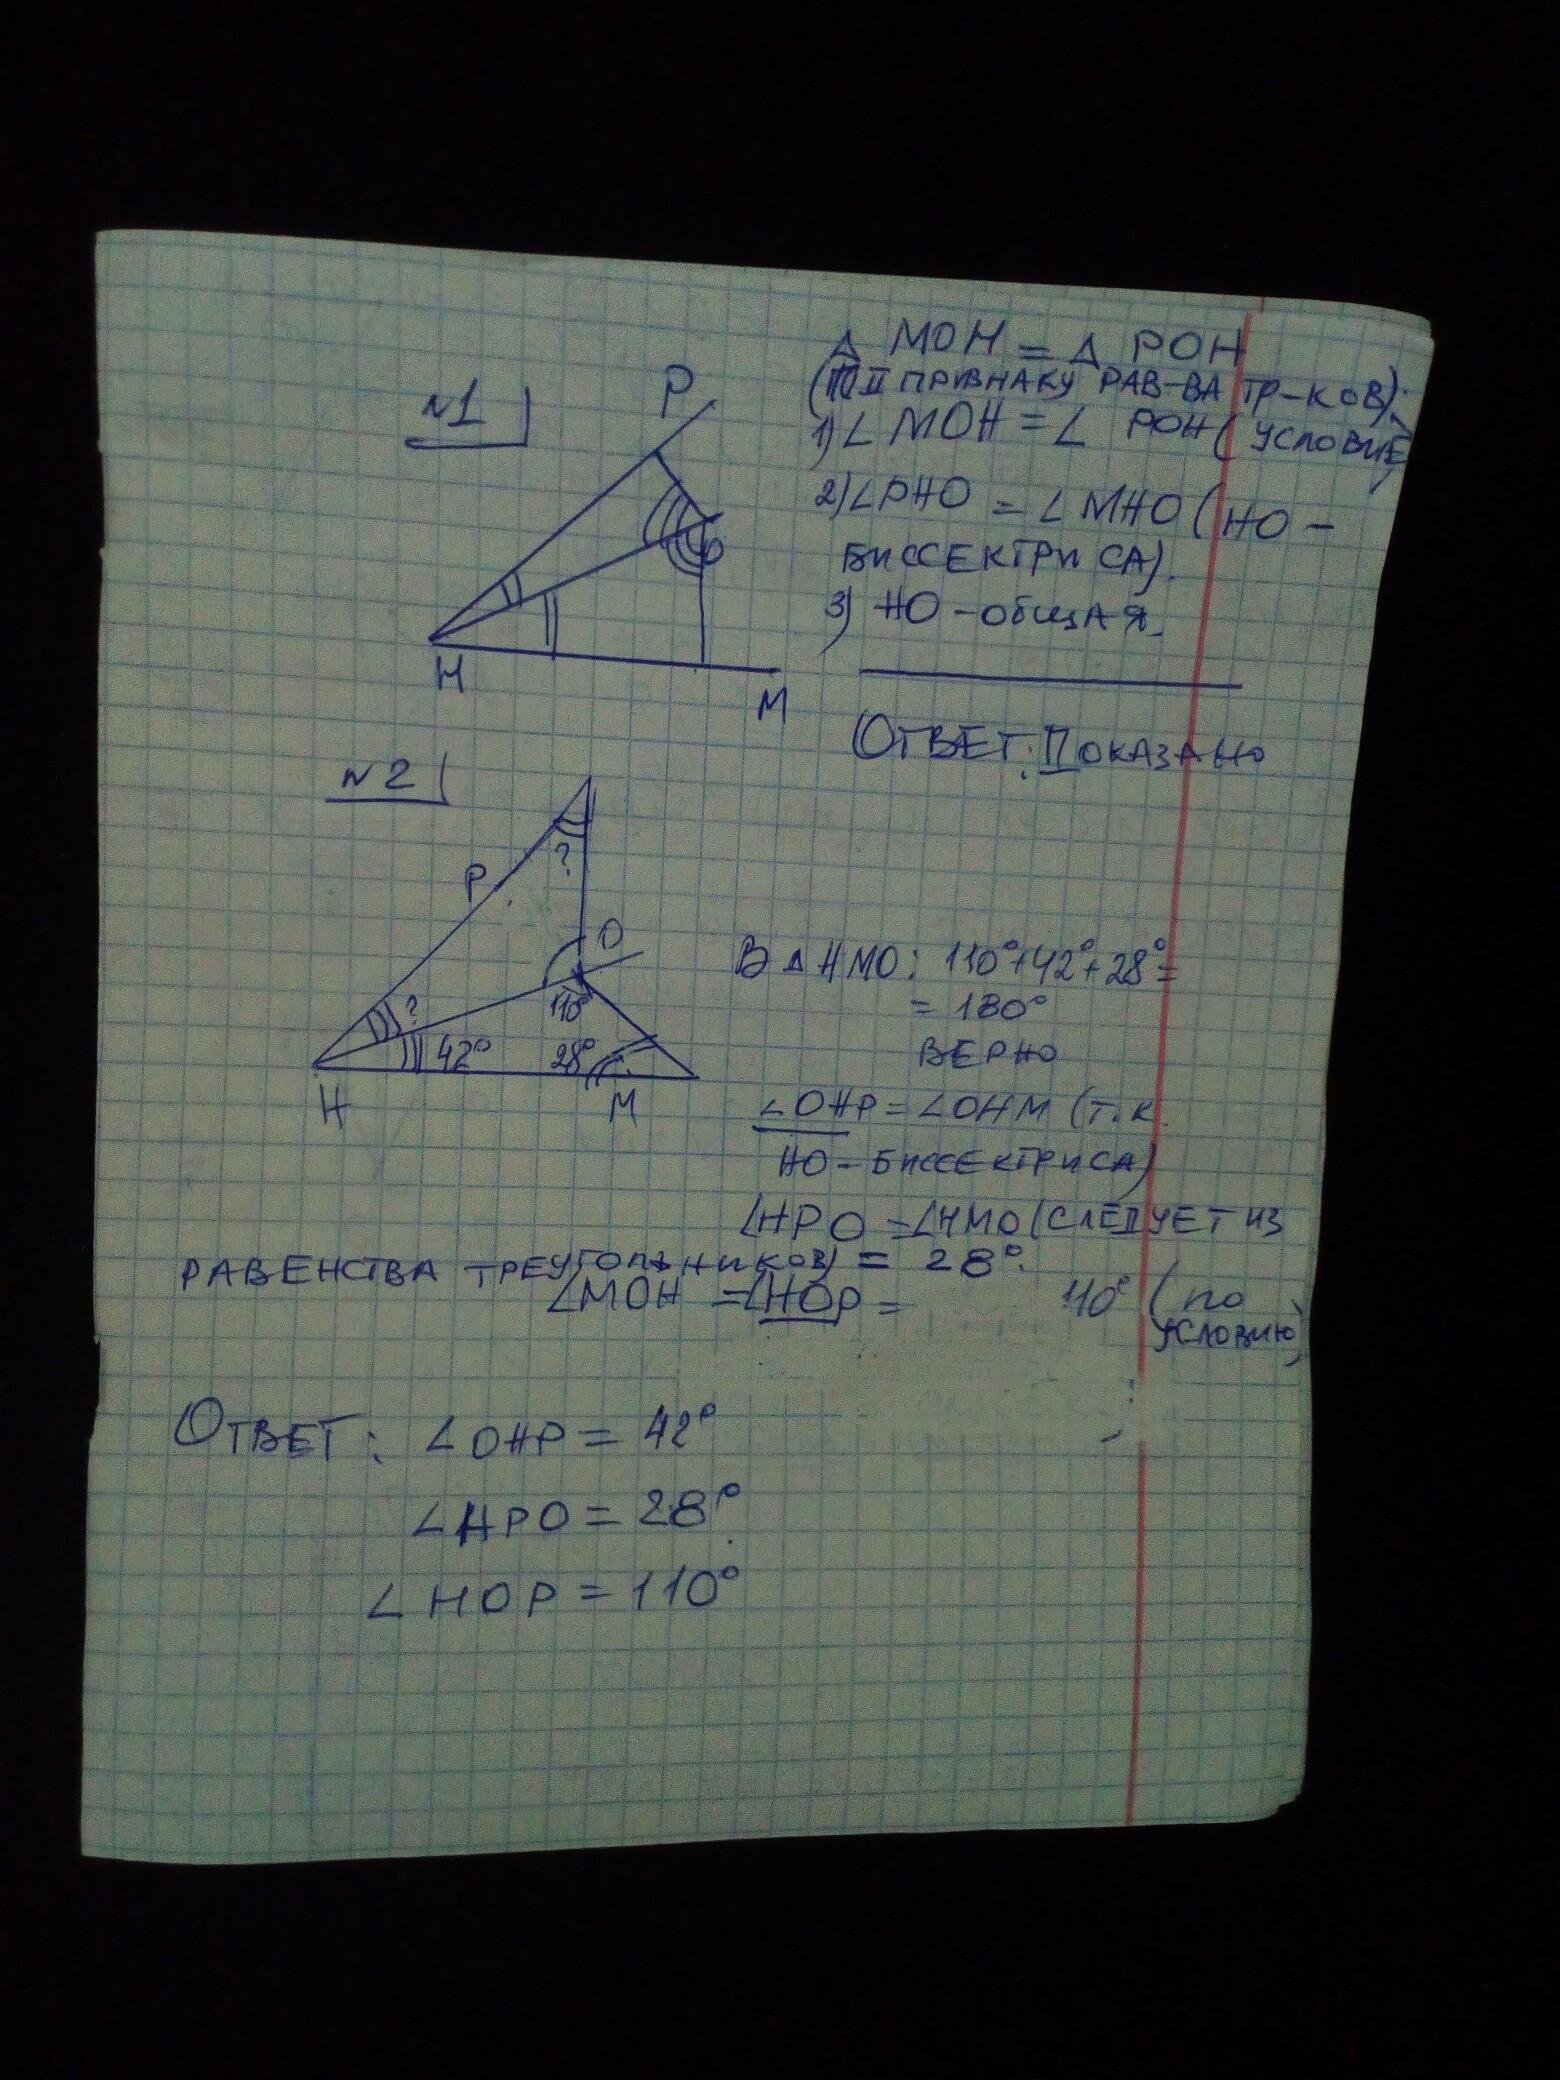 №1
P
O
H
M
Δ MOH = Δ POH
(II ПРИЗНАКУ РАВ-ВА ТР-КОВ):
1) ∠ MOH = ∠ POH (УСЛОВИЕ)
2) ∠PHO = ∠MHO (HO -
БИССЕКТРИСА).
3) HO - ОБЩАЯ.
ОТВЕТ: ПОКАЗАНО
№2
P
?
O
110°
?
42°
28°
H
M
В Δ HMO: 110°+42°+28°=
= 180°
ВЕРНО
∠OHP = ∠OHM (Т.К.
HO - БИССЕКТРИСА)
∠HPO = ∠HMO (СЛЕДУЕТ ИЗ
РАВЕНСТВА ТРЕУГОЛЬНИКОВ) = 28°.
∠MOH = ∠HOP = 110° (ПО
УСЛОВИЮ)
ОТВЕТ: ∠OHP = 42°
∠HPO = 28°
∠HOP = 110°